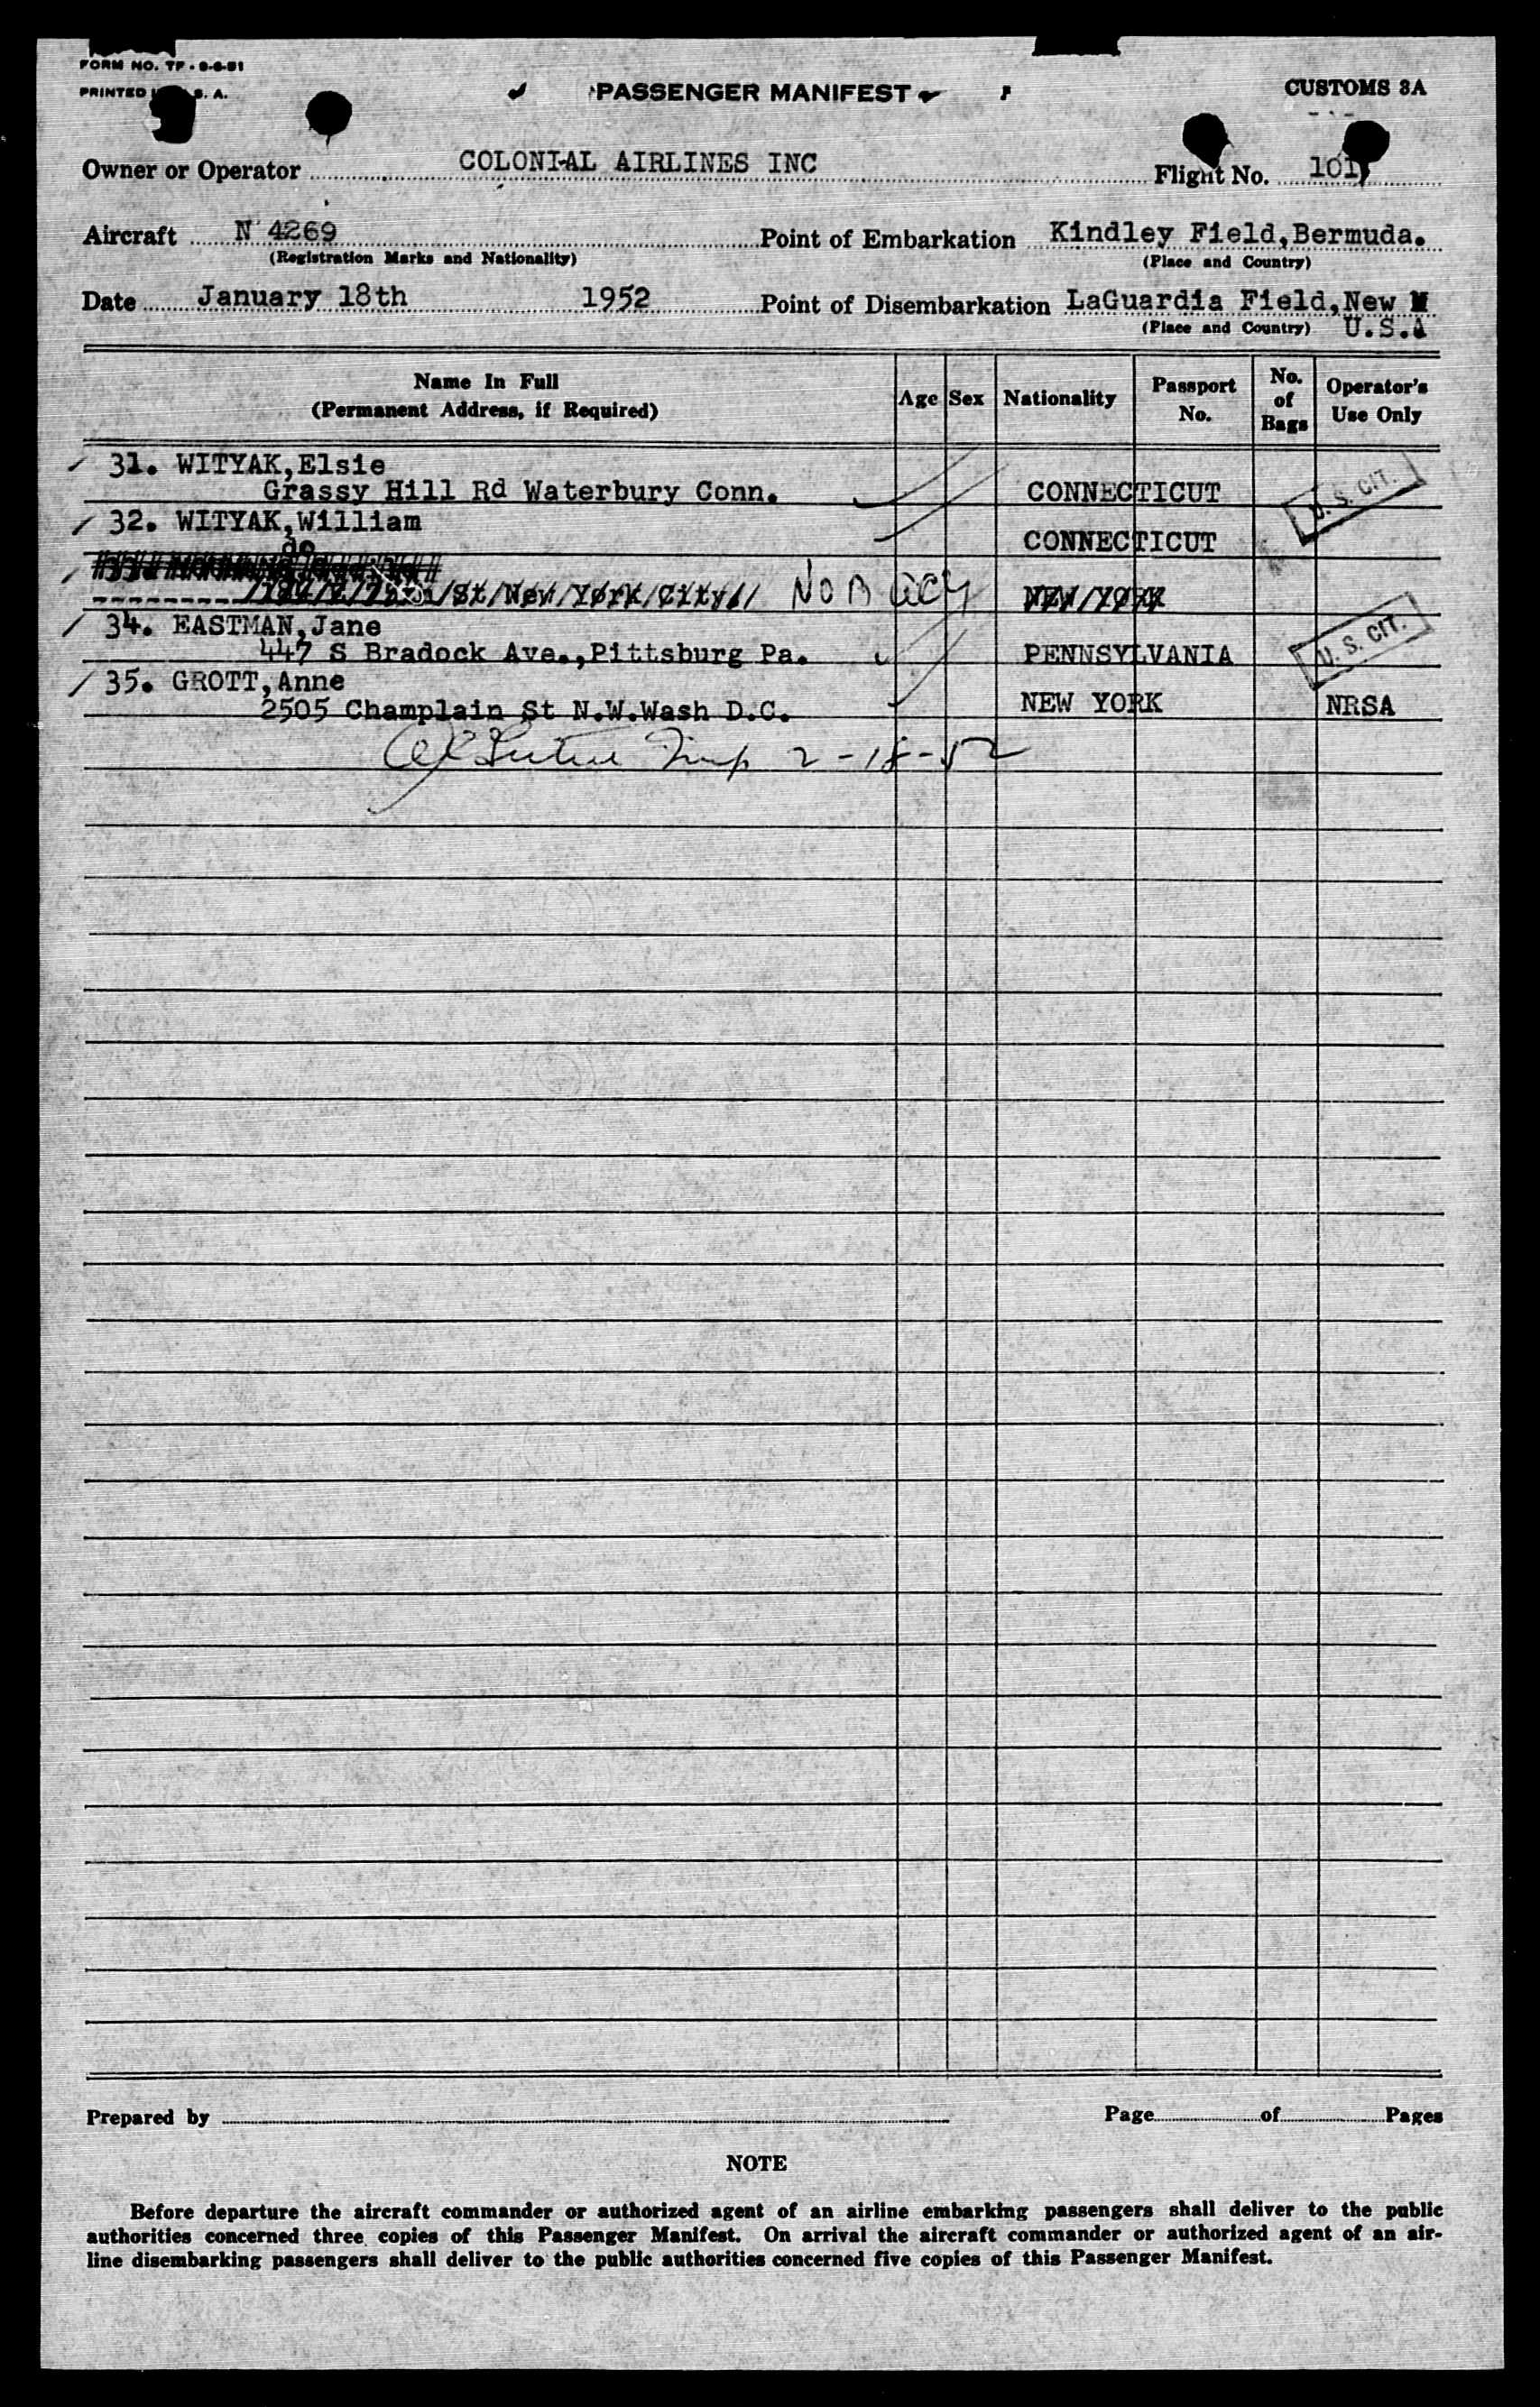 FORM NO. TF - 9-6-51
PRINTED S. A.
PASSENGER MANIFEST
CUSTOMS 3A
Owner or Operator COLONIAL AIRLINES INC Flight No. 101
Aircraft N 4269 Point of Embarkation Kindley Field,Bermuda.
(Registration Marks and Nationality) (Place and Country)
Date January 18th 1952 Point of Disembarkation LaGuardia Field,New
(Place and Country) U.S.A
Name In Full
(Permanent Address, if Required)
Age Sex Nationality Passport No. No. of Bags Operator's Use Only
31. WITYAK,Elsie
Grassy Hill Rd Waterbury Conn. CONNECTICUT U. S. CIT.
32. WITYAK,William
do CONNECTICUT
St/New/York/City// No B NEW/YORK
34. EASTMAN,Jane
447 S Bradock Ave.,Pittsburg Pa. PENNSYLVANIA U. S. CIT.
35. GROTT,Anne
2505 Champlain St N.W.Wash D.C. NEW YORK NRSA
2-18-52
Prepared by Page of Pages
NOTE
Before departure the aircraft commander or authorized agent of an airline embarking passengers shall deliver to the public
authorities concerned three copies of this Passenger Manifest. On arrival the aircraft commander or authorized agent of an air-
line disembarking passengers shall deliver to the public authorities concerned five copies of this Passenger Manifest.